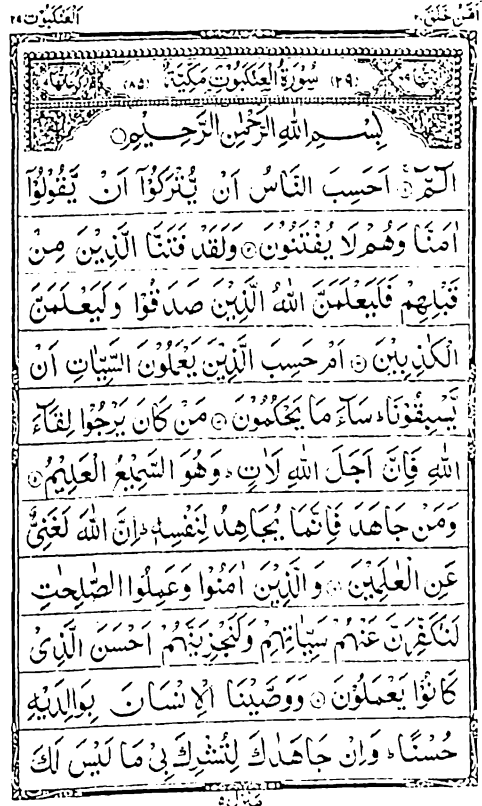 اَمَّنْ خَلَقَ ٢٠ اَلْعَنْكَبُوْت ٢٩
(٢٩) سُوْرَةُ الْعَنْكَبُوْتِ مَكِّيَّةٌ (٨٥)
بِسْمِ اللهِ الرَّحْمٰنِ الرَّحِيْمِ
الٓمّٓ اَحَسِبَ النَّاسُ اَنْ يُّتْرَكُوْٓا اَنْ يَّقُوْلُوْٓا
اٰمَنَّا وَهُمْ لَا يُفْتَنُوْنَ وَلَقَدْ فَتَنَّا الَّذِيْنَ مِنْ
قَبْلِهِمْ فَلَيَعْلَمَنَّ اللهُ الَّذِيْنَ صَدَقُوْا وَلَيَعْلَمَنَّ
الْكٰذِبِيْنَ اَمْ حَسِبَ الَّذِيْنَ يَعْمَلُوْنَ السَّيِّاٰتِ اَنْ
يَّسْبِقُوْنَا ؕ سَآءَ مَا يَحْكُمُوْنَ مَنْ كَانَ يَرْجُوْا لِقَآءَ
اللهِ فَاِنَّ اَجَلَ اللهِ لَاٰتٍ ؕ وَهُوَ السَّمِيْعُ الْعَلِيْمُ
وَمَنْ جَاهَدَ فَاِنَّمَا يُجَاهِدُ لِنَفْسِهٖ ؕ اِنَّ اللهَ لَغَنِيٌّ
عَنِ الْعٰلَمِيْنَ وَالَّذِيْنَ اٰمَنُوْا وَعَمِلُوا الصّٰلِحٰتِ
لَنُكَفِّرَنَّ عَنْهُمْ سَيِّاٰتِهِمْ وَلَنَجْزِيَنَّهُمْ اَحْسَنَ الَّذِيْ
كَانُوْا يَعْمَلُوْنَ وَوَصَّيْنَا الْاِنْسَانَ بِوَالِدَيْهِ
حُسْنًا ؕ وَاِنْ جَاهَدٰكَ لِتُشْرِكَ بِيْ مَا لَيْسَ لَكَ
مَنْزِل ٥